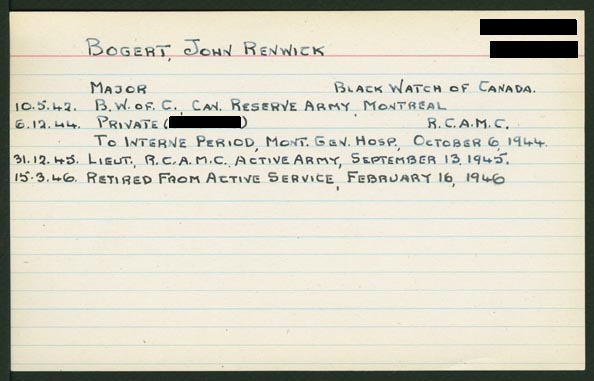 BOGERT, JOHN RENWICK
MAJOR BLACK WATCH OF CANADA.
10.5.42. B.W. OF C., CAN. RESERVE ARMY, MONTREAL
6.12.44. PRIVATE ( ) R.C.A.M.C.
TO INTERNE PERIOD, MONT. GEN. HOSP., OCTOBER 6, 1944.
31.12.45. LIEUT., R.C.A.M.C., ACTIVE ARMY, SEPTEMBER 13, 1945.
15.3.46. RETIRED FROM ACTIVE SERVICE, FEBRUARY 16, 1946